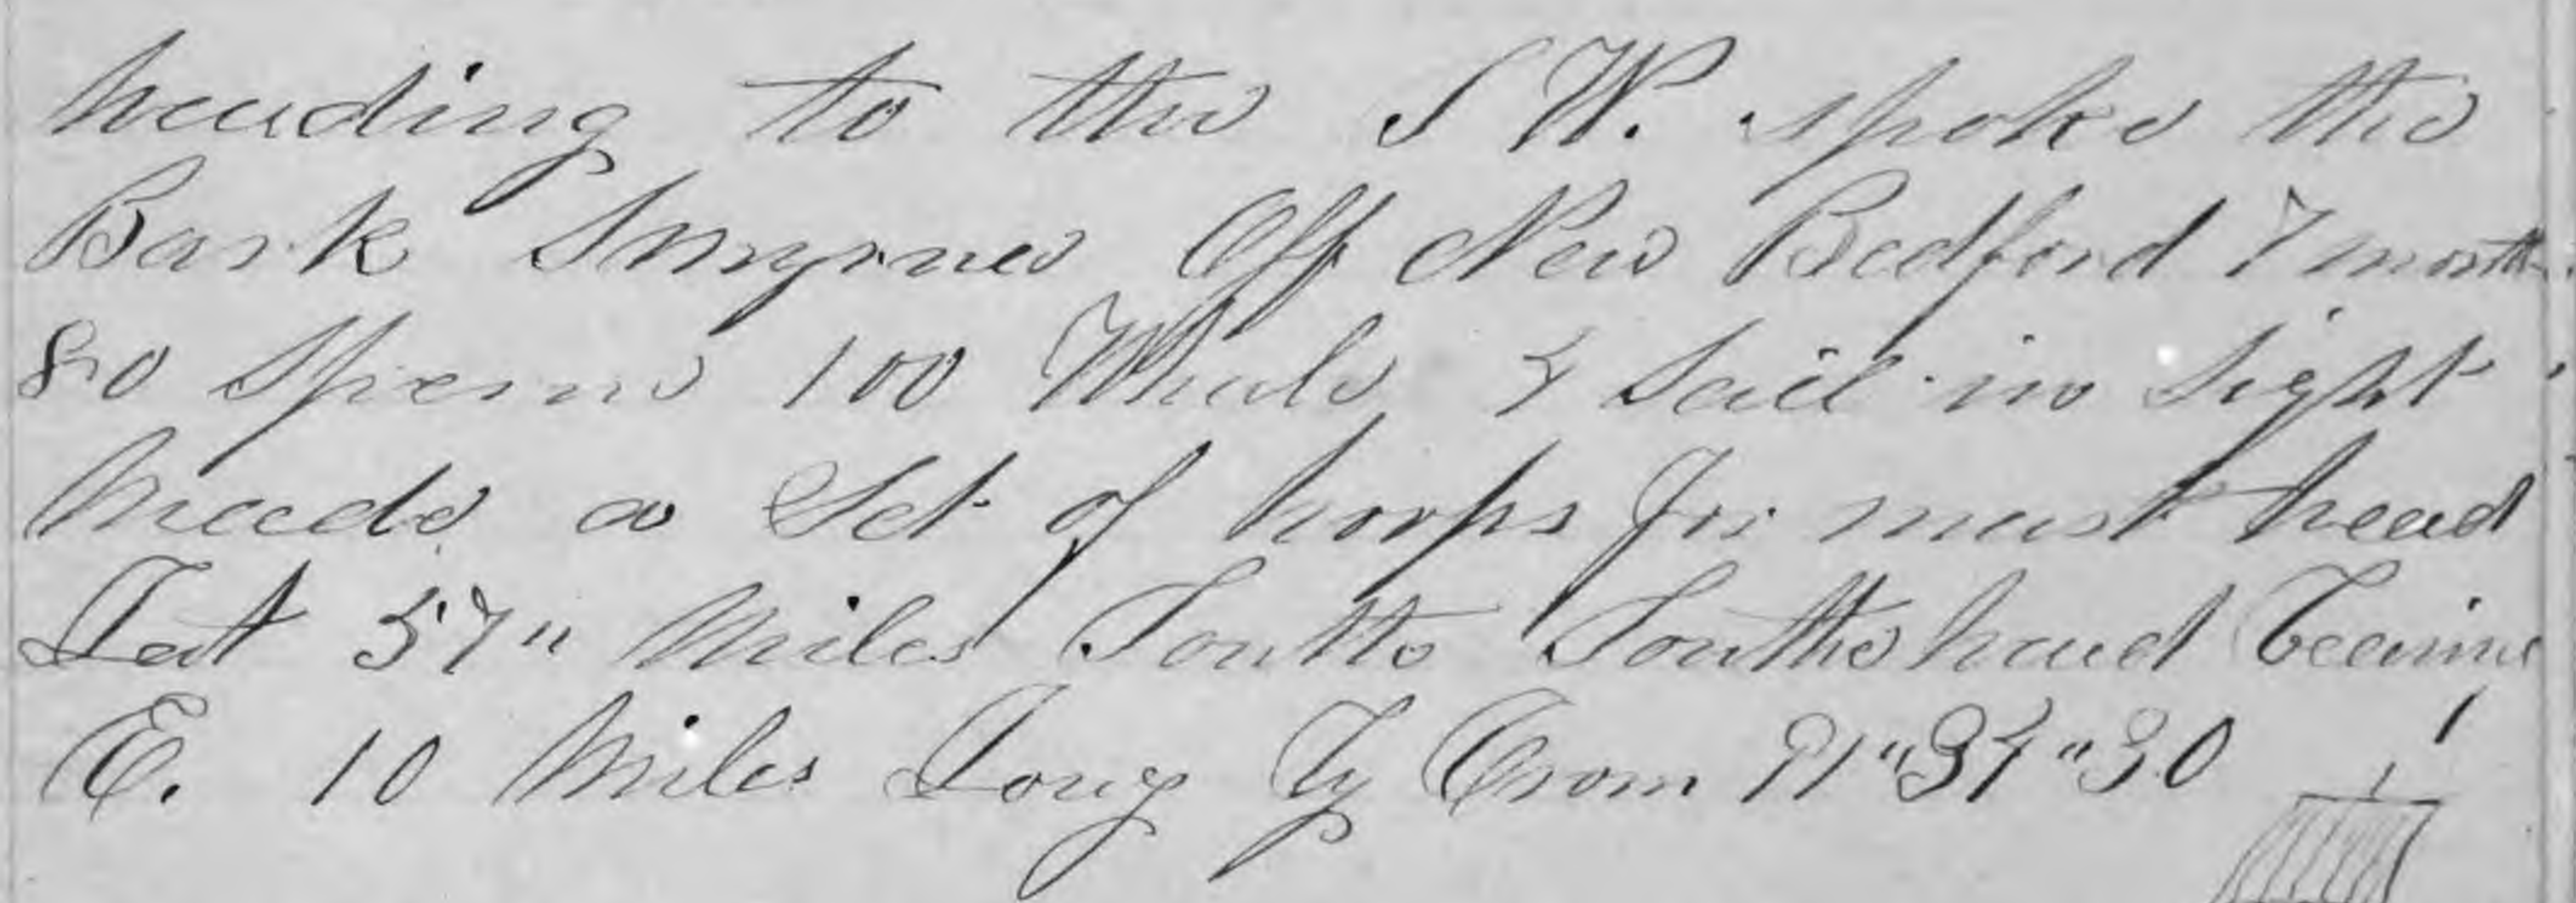 heading to the S W. spoke the
Bark Smyrna Off New Bedford 7 month
80 Sperm 100 Whale 4 Sail in Sight
Made a Set of hoops for mast head
Lat 57" Miles South Souths head bearing
E. 10 Miles Long By Crom 91"34"30